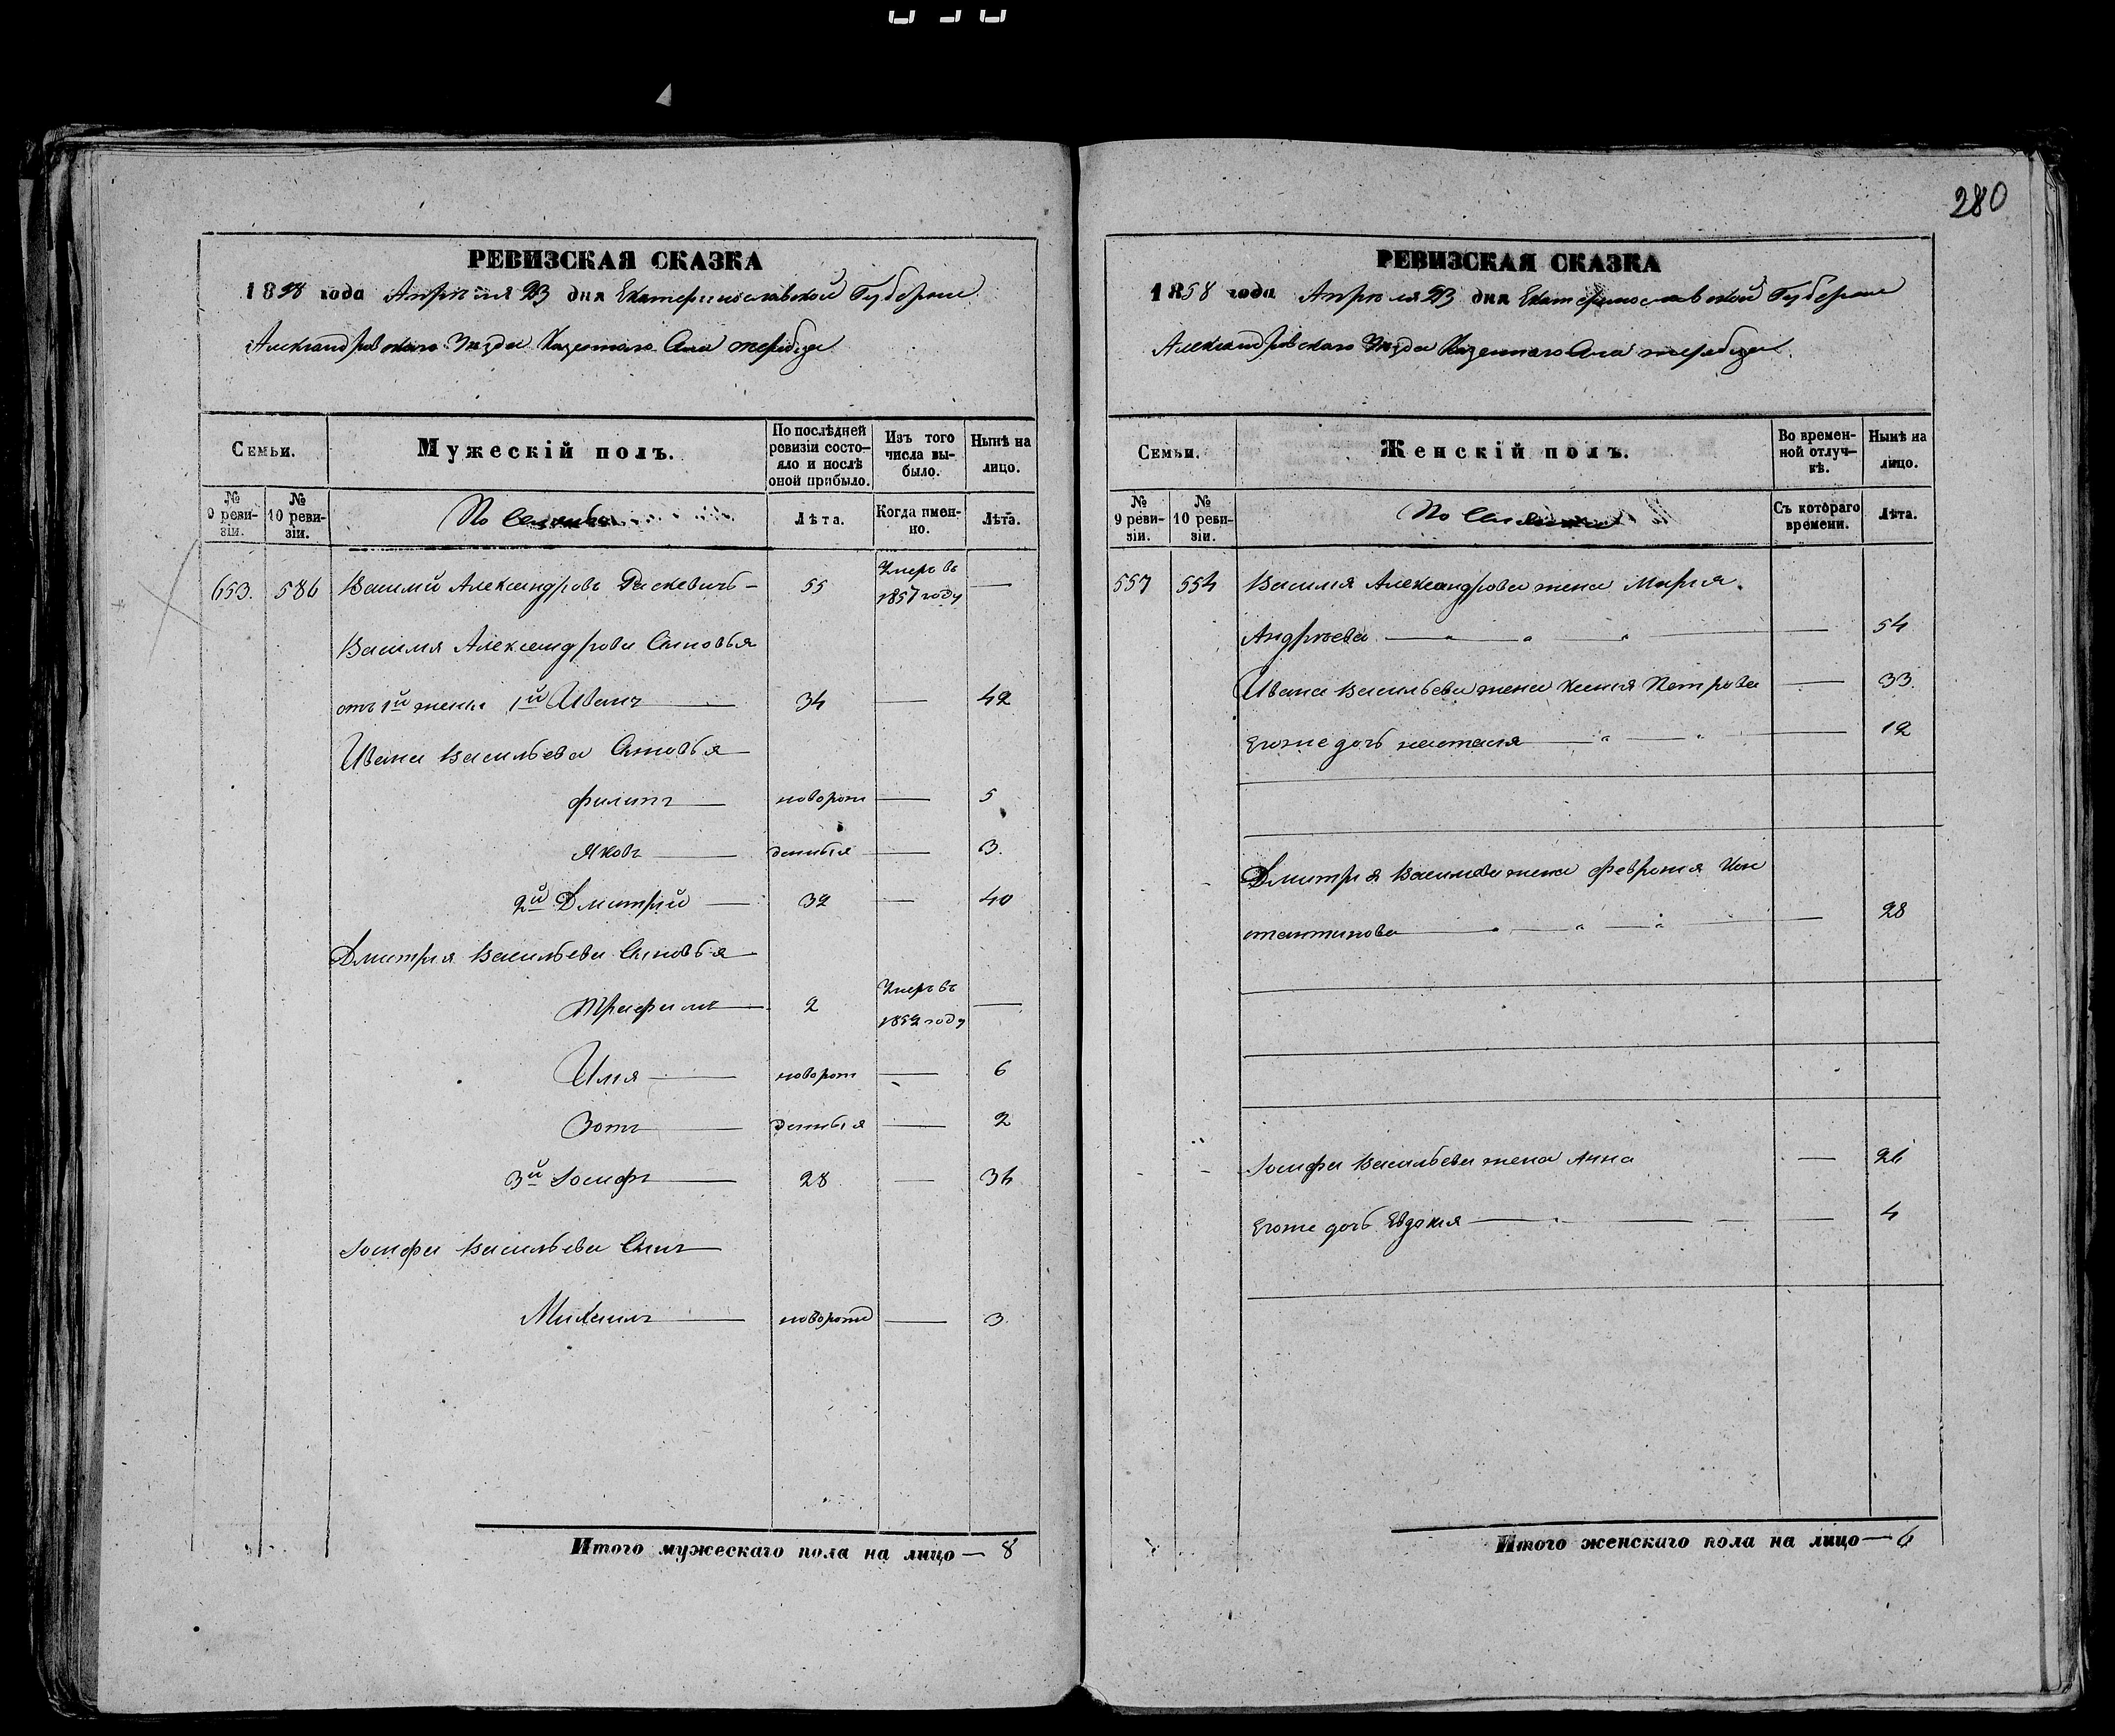 280
РЕВИЗСКАЯ СКАЗКА
1858 года Апреля 23 дня Екатеринославской Губернии
Александровскаго Уезда Казеннаго Села
Семьи.
Мужескій полъ.
По послѣдней ревизіи состо-яло и послѣ оной прибыло.
Изъ того числа вы-было.
Нынѣ на лицо.
№ 9 реви-зіи.
№ 10 реви-зіи.
Лѣта.
Когда имен-но.
Лѣта.
653. 586 Василій Александровъ — 55 Умеръ въ 1857 году —
Василия Александрова Сыновья
отъ 1й жены 1й Иванъ — 34 — 42
Ивана Васильева Сыновья
Филипъ —новорож — 5
Яковъ — денныя — 3.
2й Дмитрий — 32 — 40
Дмитрия Васильева Сыновья
Трафимъ — 2 Умеръ въ 1852 году —
Илия — новорож — 6
Зотъ — денныя — 2
3й Иосифъ — 28 — 36
Иосифа Васильева Сынъ
Михаилъ — záноворожд — 3.
Итого мужескаго пола на лицо — 8
РЕВИЗСКАЯ СКАЗКА
1858 года Апреля 23 дня Екатеринославской Губернии
Александровскаго Уезда Казеннаго Села
Семьи.
Женскій полъ.
Во времен-ной отлуч-кѣ.
Нынѣ на лицо.
№ 9 реви-зіи.
№ 10 реви-зіи.
Съ котораго времени.
Лѣта.
557 554 Василия Александрова жена Мария
Андреева — " — " — " — 54
Ивана Васильева жена Ксения Петрова — 33.
Егоже дочь Настасия — " — " — 12
Дмитрия Васильева жена Феврония Кон
стантинова — " — " — " — 28
Иосифа Васильева жена Анна — 26
Егоже дочь Евдокия — 4
Итого женскаго пола на лицо — 6